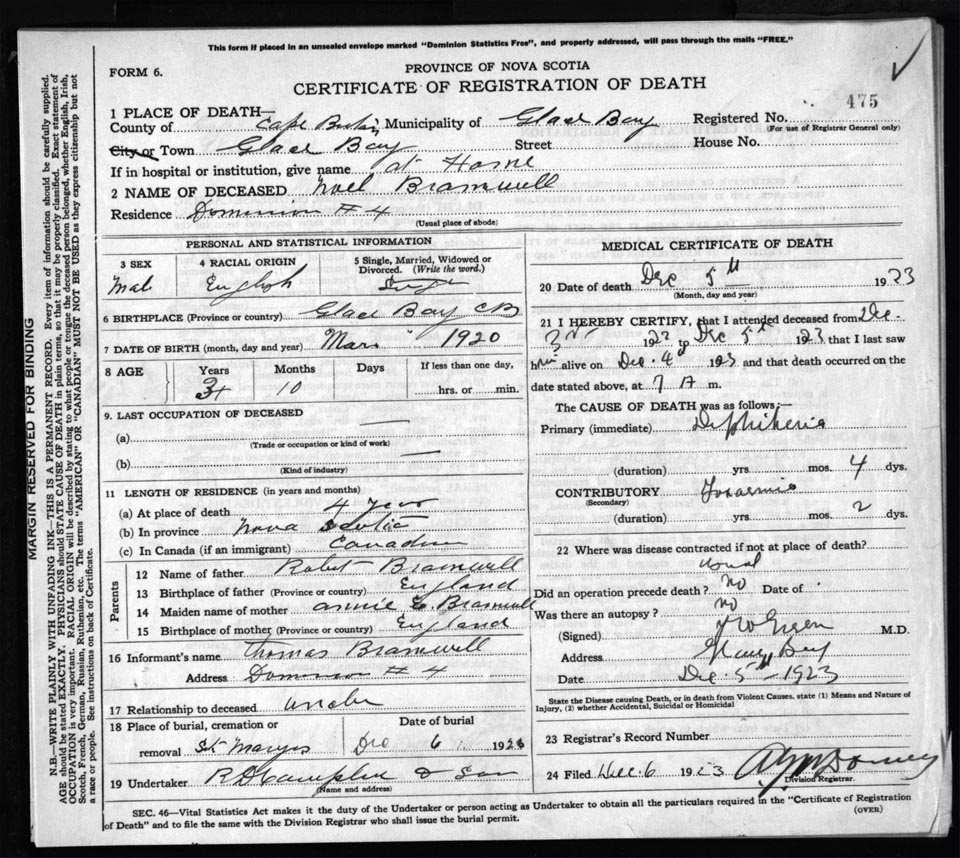 This form if placed in an unsealed envelope marked "Dominion Statistics Free", and properly addressed, will pass through the mails "FREE."
FORM 6.
PROVINCE OF NOVA SCOTIA
CERTIFICATE OF REGISTRATION OF DEATH
475
1 PLACE OF DEATH—
County of Cape Breton Municipality of Glace Bay Registered No.
(For use of Registrar General only)
City or Town Glace Bay Street House No.
If in hospital or institution, give name at Home
2 NAME OF DECEASED Noel Bramwell
Residence Dominion # 4
(Usual place of abode)
PERSONAL AND STATISTICAL INFORMATION
3 SEX 4 RACIAL ORIGIN 5 Single, Married, Widowed or Divorced. (Write the word.)
Mal English
6 BIRTHPLACE (Province or country) Glace Bay CB
7 DATE OF BIRTH (month, day and year) Mar 1920
8 AGE Years Months Days If less than one day,
3 10 hrs. or min.
9. LAST OCCUPATION OF DECEASED
(a)
(Trade or occupation or kind of work)
(b)
(Kind of industry)
11 LENGTH OF RESIDENCE (in years and months)
(a) At place of death 4 years
(b) In province Nova Scotia
(c) In Canada (if an immigrant) Canadian
Parents
12 Name of father Robert Bramwell
13 Birthplace of father (Province or country) England
14 Maiden name of mother Annie E. Bramwell
15 Birthplace of mother (Province or country) England
16 Informant's name Thomas Bramwell
Address Dominion # 4
17 Relationship to deceased uncle
18 Place of burial, cremation or removal St Marys
Date of burial Dec 6 192
19 Undertaker & Son
(Name and address)
MEDICAL CERTIFICATE OF DEATH
20 Date of death Dec 5th 1923
(Month, day and year)
21 I HEREBY CERTIFY, that I attended deceased from Dec.
3rd to Dec 5th 1923 that I last saw
him alive on Dec. 4th 1923 and that death occurred on
date stated above, at 7 A m.
The CAUSE OF DEATH was as follows:—
Primary (immediate) Diphtheria
(duration) yrs. mos. 4 dys.
CONTRIBUTORY Toxaemia
(Secondary)
(duration) yrs. mos. 2 dys.
22 Where was disease contracted if not at place of death?
usual
Did an operation precede death? No Date of
Was there an autopsy? No
(Signed) M.D.
Address Glace Bay
Date Dec. 5th 1923
State the Disease causing Death, or in death from Violent Causes, state (1) Means and Nature of Injury, (2) whether Accidental, Suicidal or Homicidal
23 Registrar's Record Number
24 Filed Dec. 6 1923
Division Registrar.
SEC. 46—Vital Statistics Act makes it the duty of the Undertaker or person acting as Undertaker to obtain all the particulars required in the "Certificate of Registration
of Death" and to file the same with the Division Registrar who shall issue the burial permit. (OVER)
MARGIN RESERVED FOR BINDING
N.B.—WRITE PLAINLY WITH UNFADING INK—THIS IS A PERMANENT RECORD. Every item of information should be carefully supplied.
AGE should be stated EXACTLY. PHYSICIANS should STATE CAUSE OF DEATH in plain terms, so that it may be properly classified. Exact statement of
OCCUPATION is very important. RACIAL ORIGIN will be described by stating to what people or tongue the deceased person belonged, whether English, Irish,
Scotch, French, German, Russian, Ruthenian, etc. The terms "AMERICAN" OR "CANADIAN" MUST NOT BE USED as they express citizenship but not
a race or people. See instructions on back of Certificate.